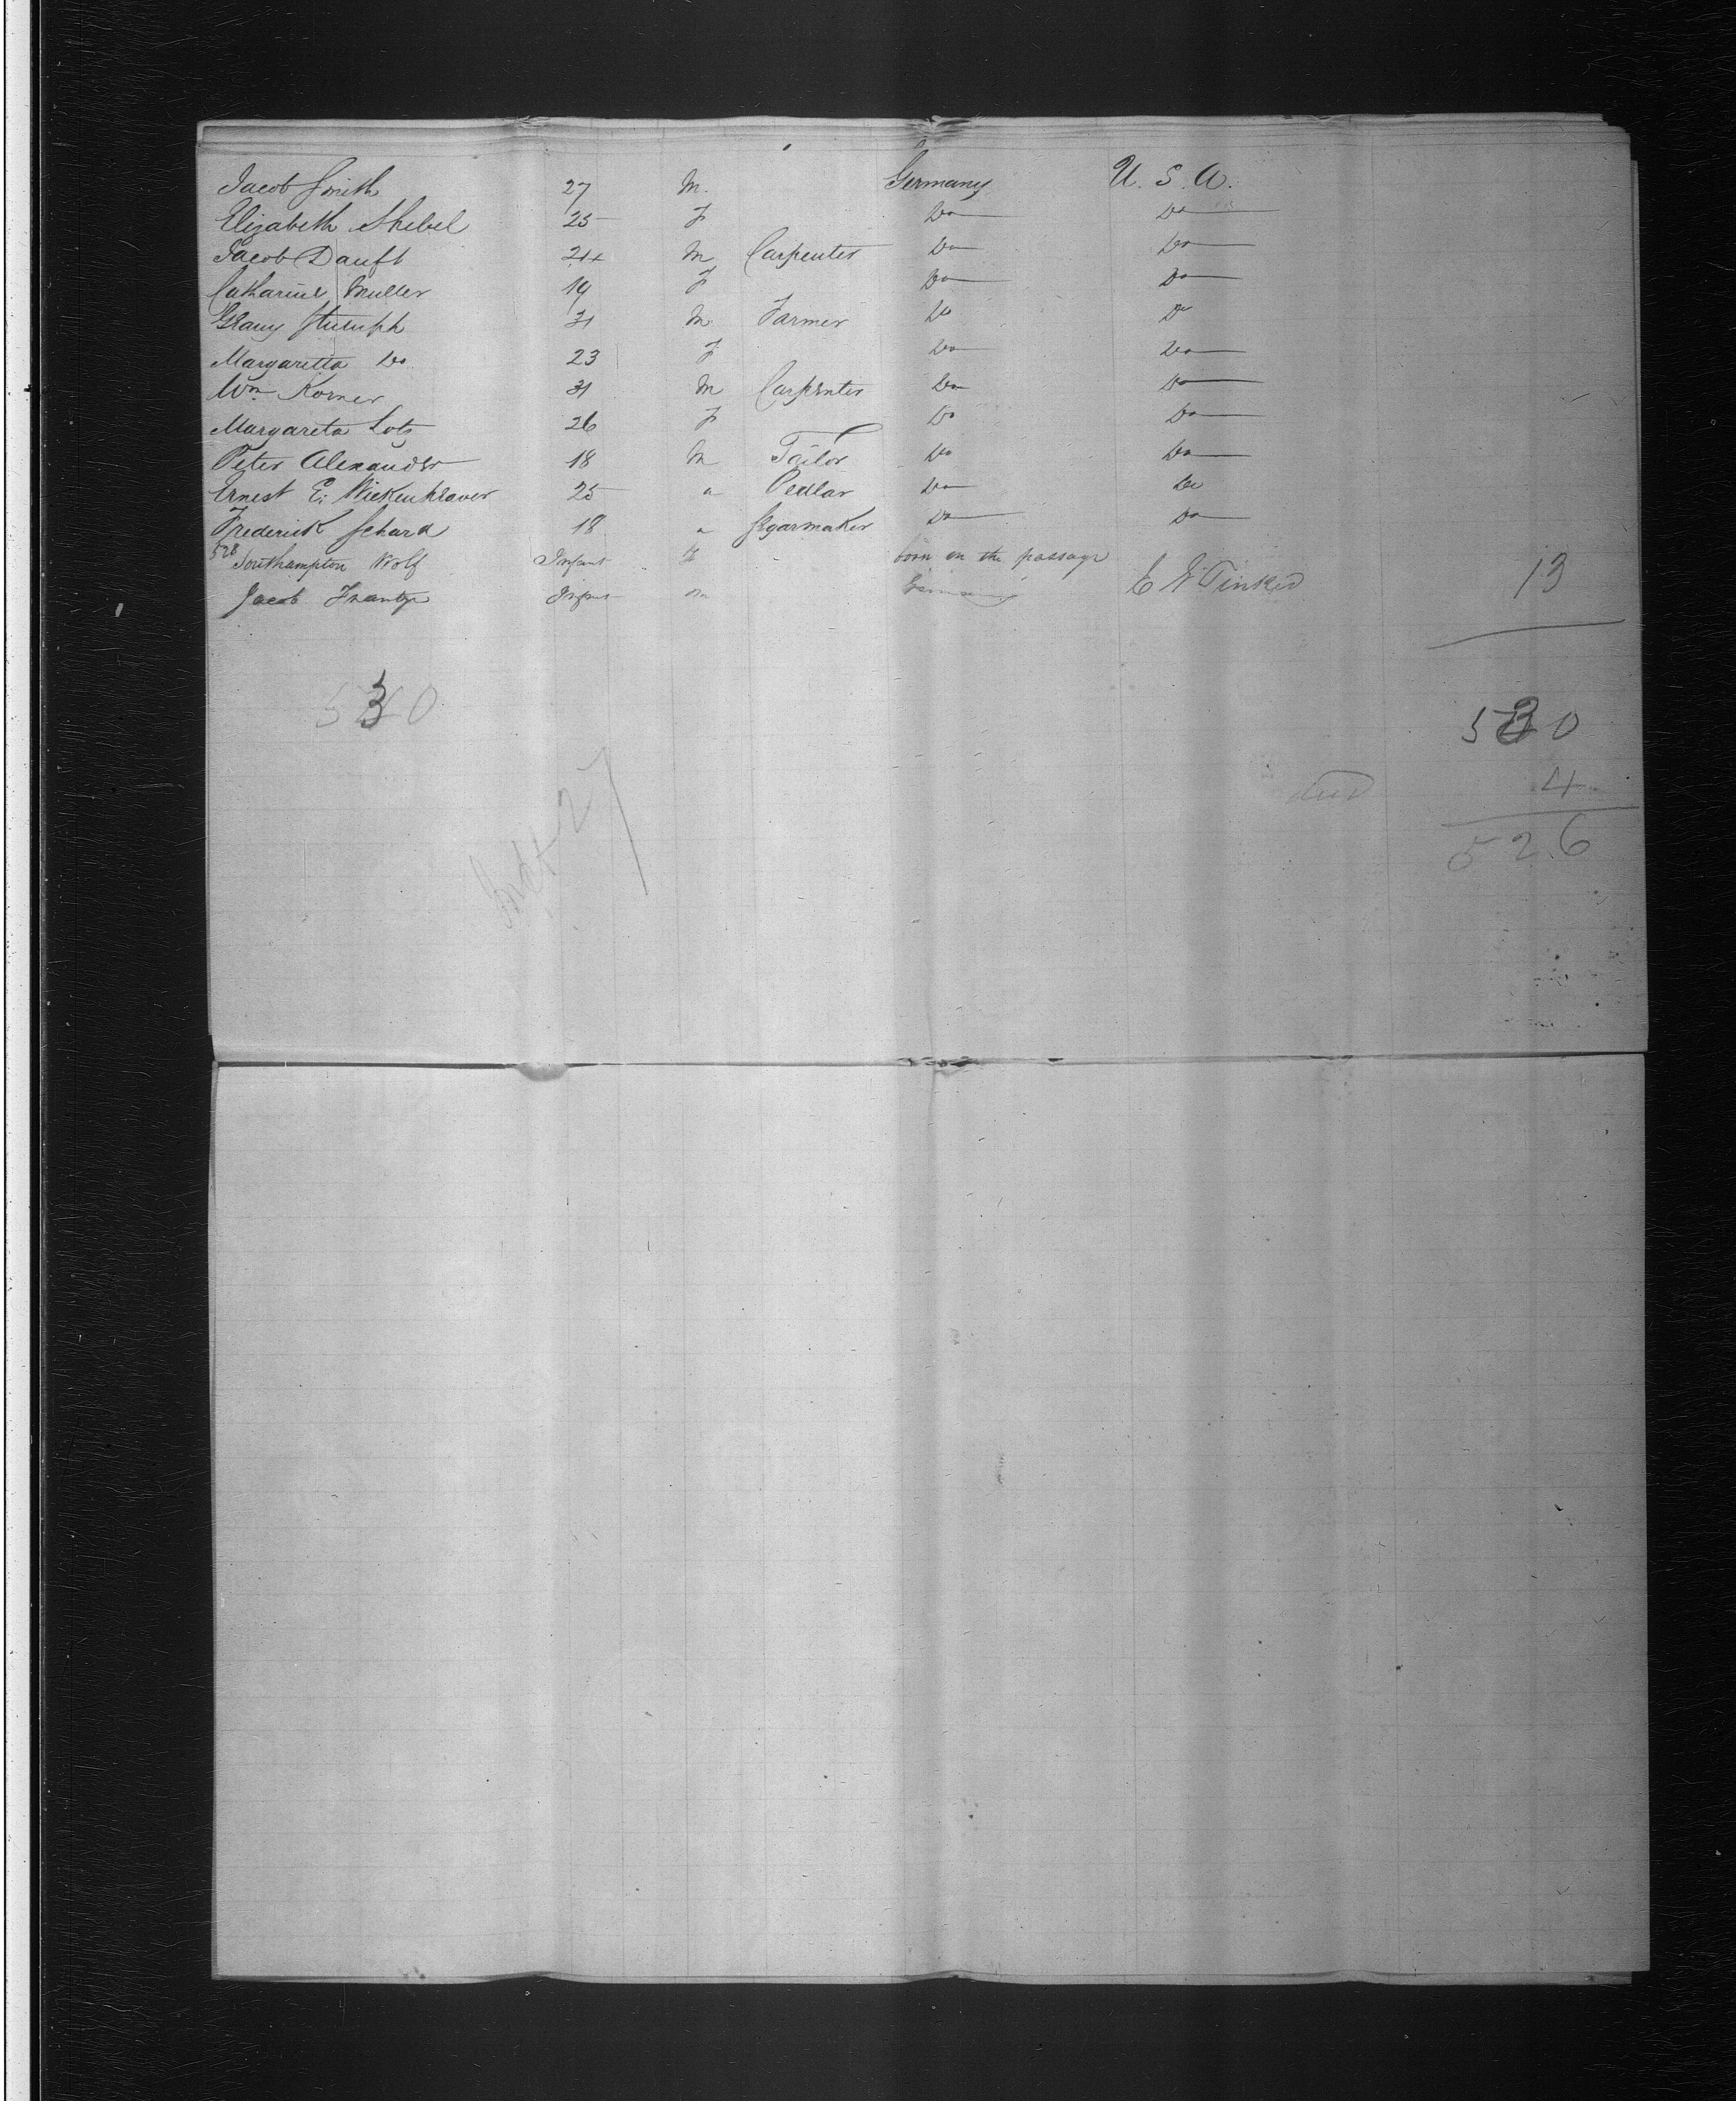 Jacob Smith 27 M. Germany U. S. A.
Elizabeth Shebel 25 F Do Do
Jacob Dauft 24 M Carpenter Do Do
Catharine Muller 19 F Do Do
Stumph 31 M Farmer Do Do
Margaretta Do 23 F Do Do
Wm Korner 31 M Carpenter Do Do
Margareta Lotz 26 F Do Do
Peter Alexander 18 M Tailor Do Do
Ernest E. Wickenklaver 25 " Pedlar Do Do
Frederick Schard 18 " Segarmaker Do Do
528 Southampton Wolf Infant born on the passage
Jacob Frantze Infant m Germany E W Tinker 13
530 530
4
526